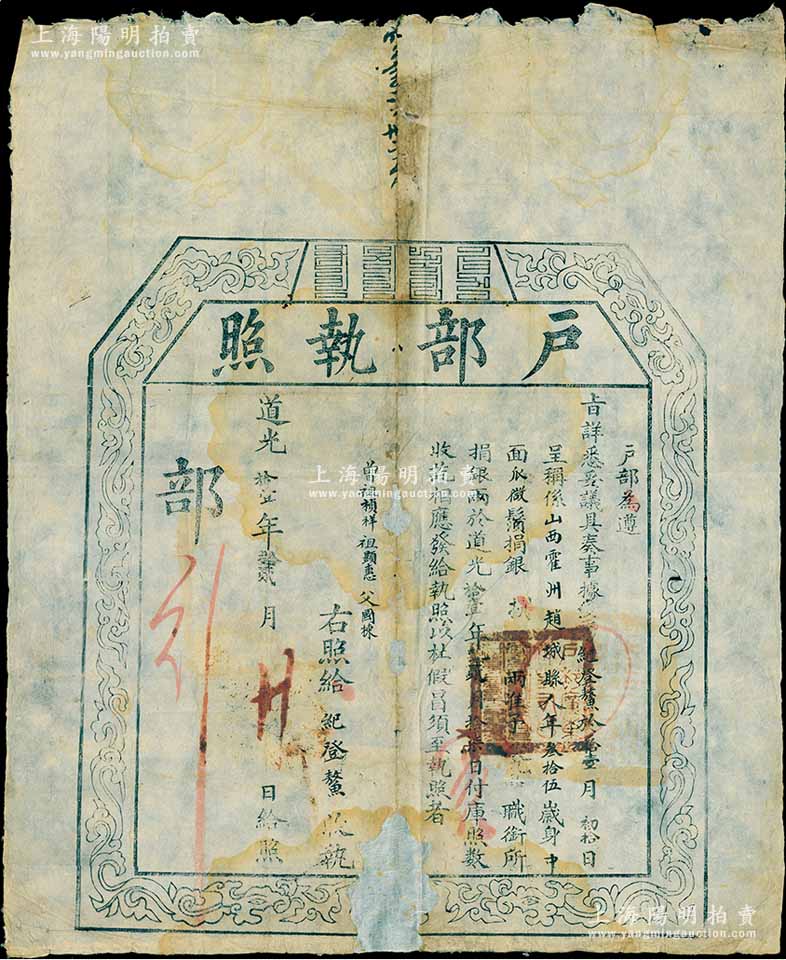 上海陽明拍賣
www.yangmingauction.com
上海陽明拍賣
www.yangmingauction.com
戶部執照
戶部為遵
旨詳悉妥議具奏事據
紀登鰲於拾壹月初拾日
呈稱係山西霍州趙城縣人年叁拾伍歲身中
面瓜微鬚捐銀 兩准予 職銜所
捐銀兩於道光拾壹年 月拾 日付庫照數
收訖相應發給執照以杜假冒須至執照者
曾祖禎祥 祖顯惠 父國棟
右照給紀登鰲收執
道光拾壹年拾貳月廿 日給照
部
上海陽明拍賣
www.yangmingauction.com
上海陽明拍賣
www.yangmingauction.com